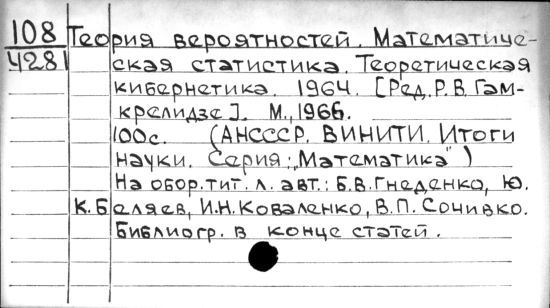 108 Теория вероятностей. Математиче-
4281 ская статистика. Теоретическая
кибернетика. 1964. [Ред. Р.В. Гам-
крелидзе]. М., 1966.
100с. (АНСССР. ВИНИТИ. Итоги
науки. Серия: „Математика")
На обор. тит. л. авт.: Б.В. Гнеденко, Ю.
К. Беляев, И.Н. Коваленко, В.П. Сочивко.
Библиогр. в конце статей.